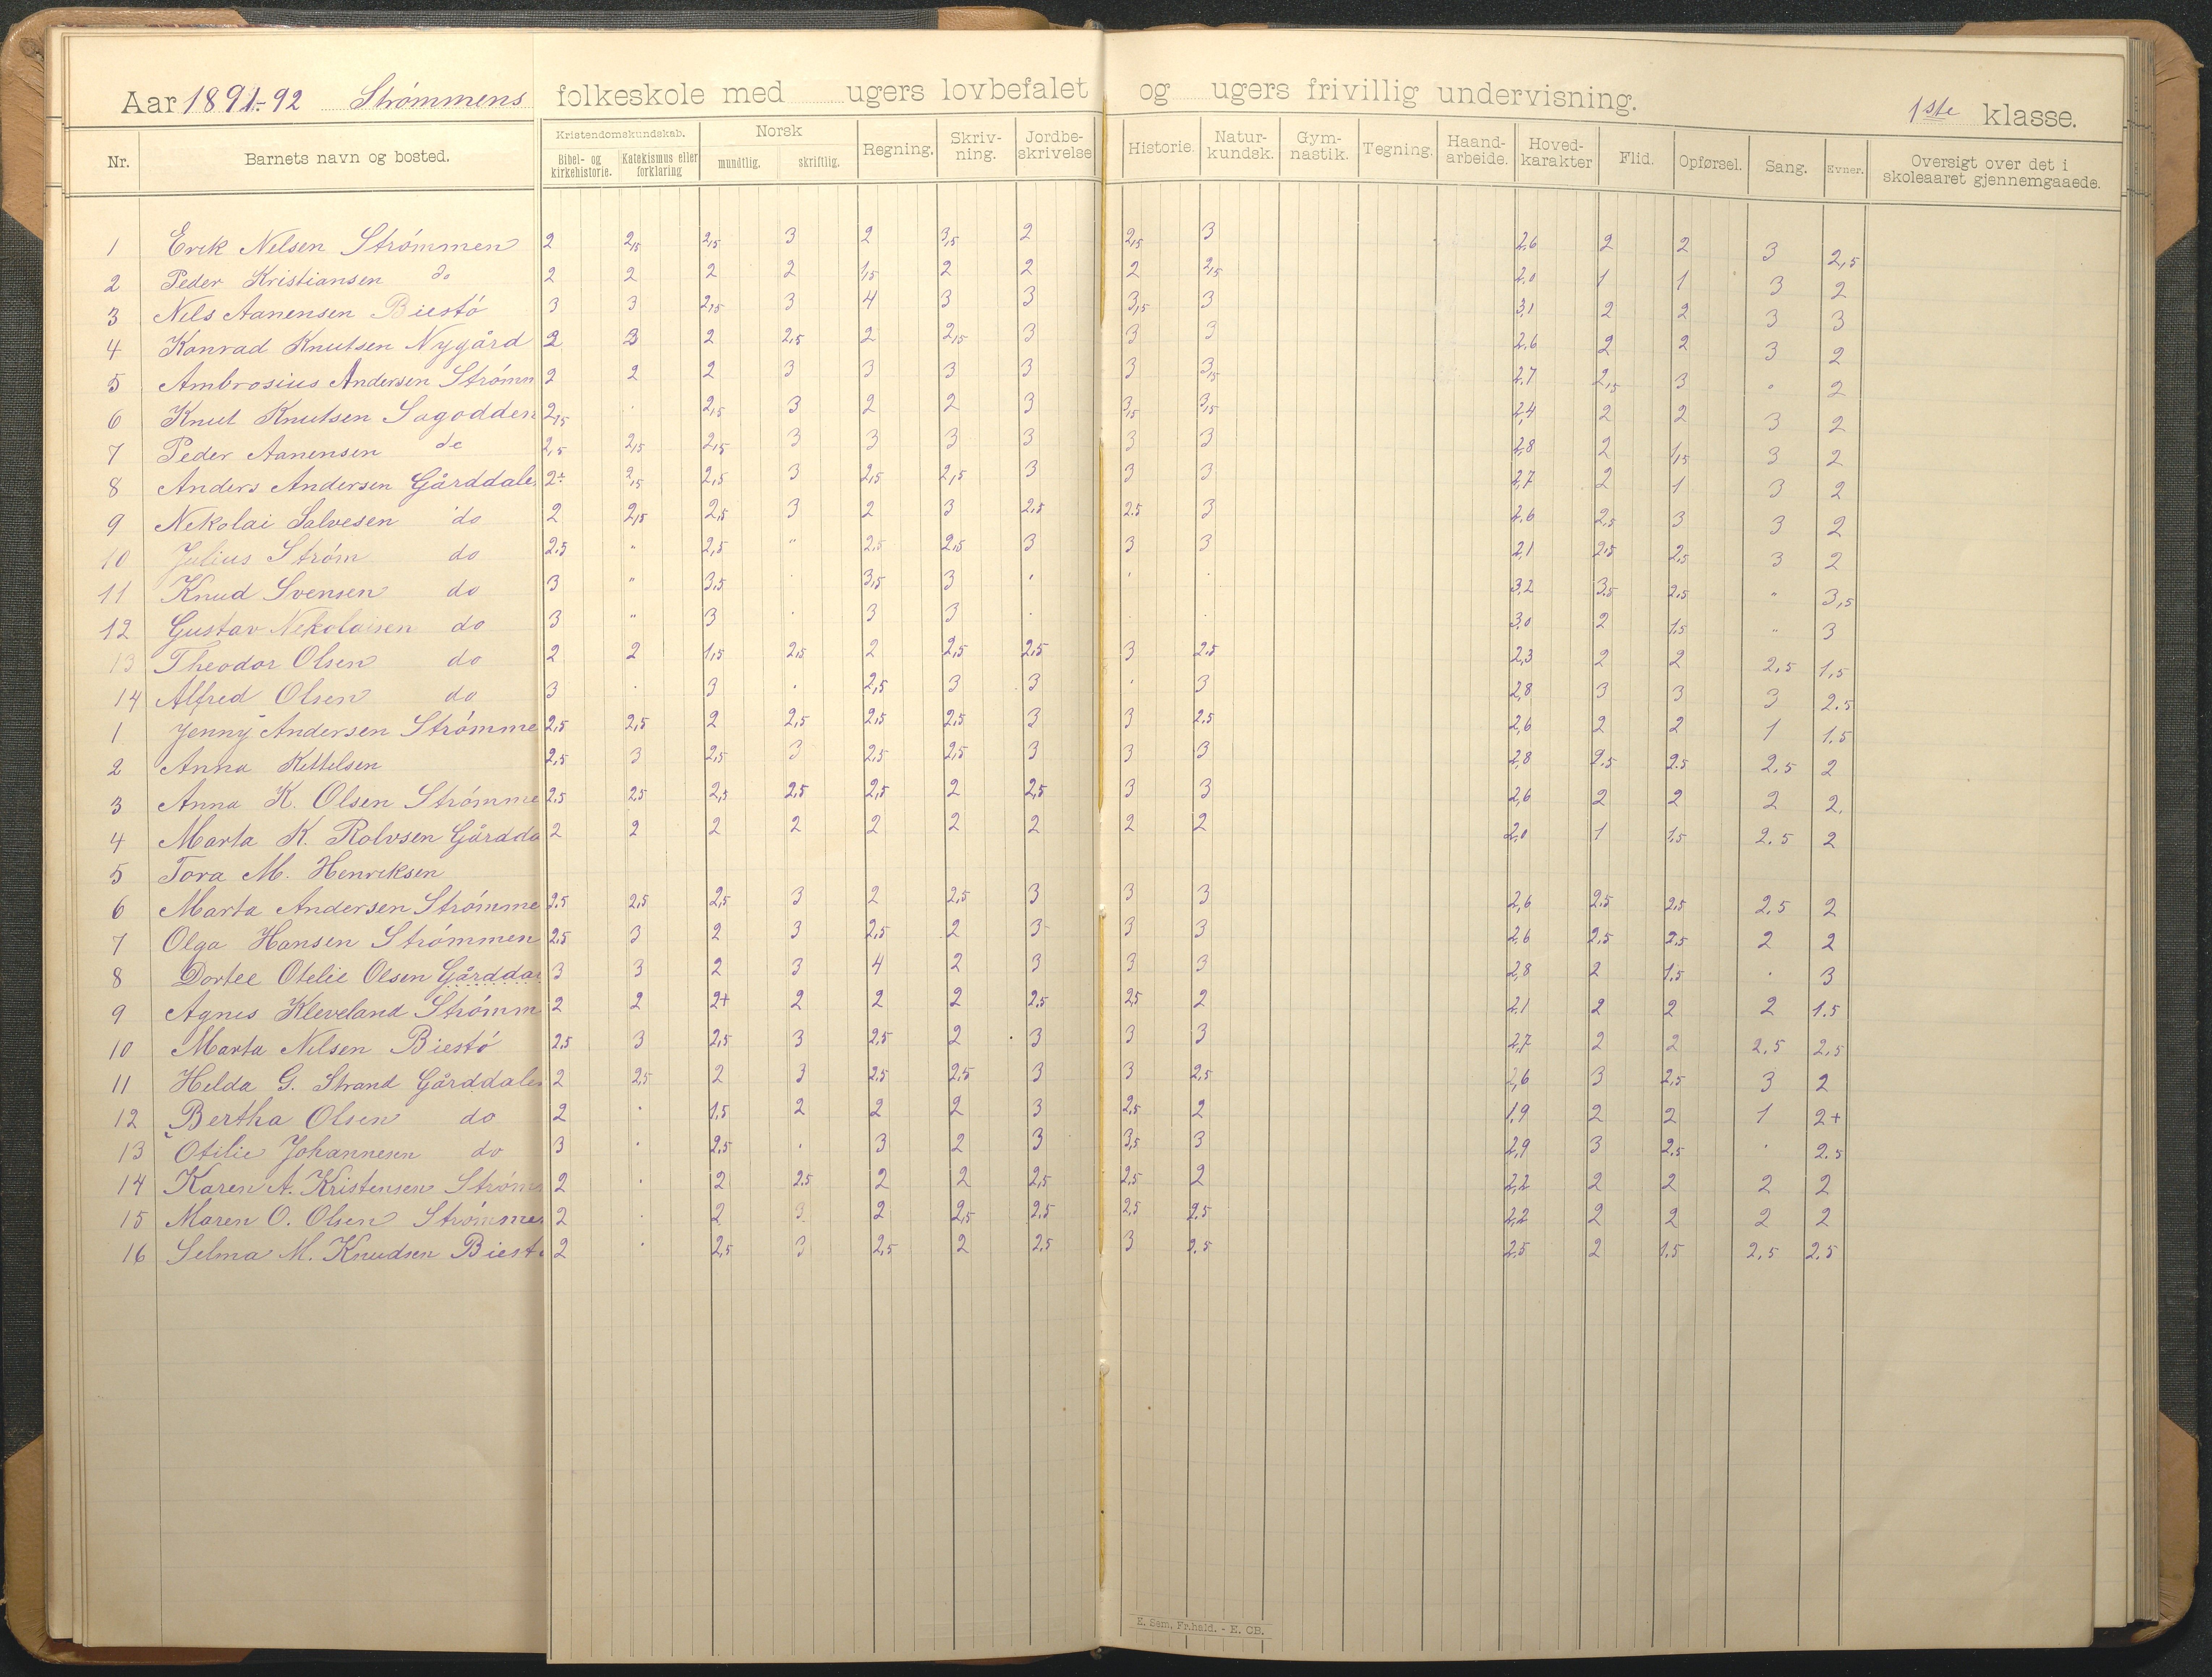 Aar 1891-92 Strømmens folkeskole med ugers lovbefalet og ugers frivillig undervisning. 1ste klasse.
Nr. Barnets navn og bosted. Kristendomskundskab. Bibel- og kirkehistorie. Katekismus eller forklaring Norsk mundtlig. skriftlig. Regning. Skriv-ning. Jordbe-skrivelse Historie. Natur-kundsk. Gym-nastik. Tegning. Haand-arbeide. Hoved-karakter Flid. Opførsel. Sang. Evner. Oversigt over det i skoleaaret gjennemgaaede.
1 Erik Nilsen Strømmen 2 2,5 2,5 3 2 3,5 2 2,5 3 2,6 2 2 3 2,5
2 Peder Kristiansen do 2 2 2 2 1,5 2 2 2 2,5 2,0 1 1 3 2
3 Nils Aanensen Biestø 3 3 2,5 3 4 3 3 3,5 3 3,1 2 2 3 3
4 Konrad Knutsen Nygård 2 3 2 2,5 2 2,5 3 3 3 2,6 2 2 3 2
5 Ambrosius Andersen Strømm 2 2 2 3 3 3 3 3 3,5 2,7 2,5 3 . 2
6 Knut Knutsen Sagodden 2,5 . 2,5 3 2 2 3 3,5 3,5 2,4 2 2 3 2
7 Peder Aanensen do 2,5 2,5 2,5 3 3 3 3 3 3 2,8 2 1,5 3 2
8 Anders Andersen Gårddalen 2÷ 2,5 2,5 3 2,5 2,5 3 3 3 2,7 2 1 3 2
9 Nikolai Salvesen do 2 2,5 2,5 3 2 3 2,5 2.5 3 2,6 2,5 3 3 2
10 Julius Strøm do 2.5 " 2,5 " 2,5 2,5 3 3 3 2,1 2,5 2,5 3 2
11 Knud Svensen do 3 " 3,5 . 3,5 3 . . . 3,2 3.5 2.5 " 3,5
12 Gustav Nikolaisen do 3 " 3 . 3 3 . . . 3,0 2 1.5 " 3
13 Theodor Olsen do 2 2 1,5 2,5 2 2,5 2,5 3 2.5 2,3 2 2 2,5 1,5
14 Alfred Olsen do 3 . 3 . 2,5 3 3 . 3 2,8 3 3 3 2.5
1 Jenny Andersen Strømme 2,5 2,5 2 2,5 2,5 2,5 3 3 2.5 2,6 2 2 1 1.5
2 Anna Kittelsen 2,5 3 2,5 3 2,5 2,5 3 3 3 2,8 2.5 2.5 2,5 2
3 Anna K. Olsen Strømme 2.5 2,5 2,5 2,5 2,5 2 2,5 3 3 2,6 2 2 2 2.
4 Marta K. Rolvsen Gårdda 2 2 2 2 2 2 2 2 2 2,0 1 1,5 2.5 2
5 Tora M. Henriksen
6 Marta Andersen Strømme 2.5 2,5 2,5 3 2 2,5 3 3 3 2,6 2.5 2,5 2,5 2
7 Olga Hansen Strømmen 2,5 3 2 3 2,5 2 3 3 3 2,6 2,5 2,5 2 2
8 Dortee Otelie Olsen Gårdda 3 3 2 3 4 2 3 3 3 2,8 2 1.5 . 3
9 Agnes Kleveland Strømm 2 2 2+ 2 2 2 2.5 2,5 2 2.1 2 2 2 1.5
10 Marta Nilsen Biestø 2.5 3 2,5 3 2,5 2 3 3 3 2,7 2 2 2,5 2,5
11 Helda G. Strand Gårddalen 2 2,5 2 3 2,5 2,5 3 3 2,5 2,6 3 2,5 3 2
12 Bertha Olsen do 2 . 1,5 2 2 2 3 2,5 2 1.9 2 2 1 2+
13 Otilie Johannesen do 3 . 2.5 . 3 2 3 3,5 3 2,9 3 2.5 . 2.5
14 Karen A. Kristensen Strøm 2 . 2 2.5 2 2 2,5 2,5 2 2,2 2 2 2 2
15 Maren O. Olsen Strømme 2 . 2 3 2 2,5 2,5 2,5 2.5 2,2 2 2 2 2
16 Selma M. Knudsen Biest 2 . 2,5 3 2,5 2 2,5 3 2.5 2.5 2 1.5 2,5 2.5
E. Sem, Fr.hald. - E. CB.